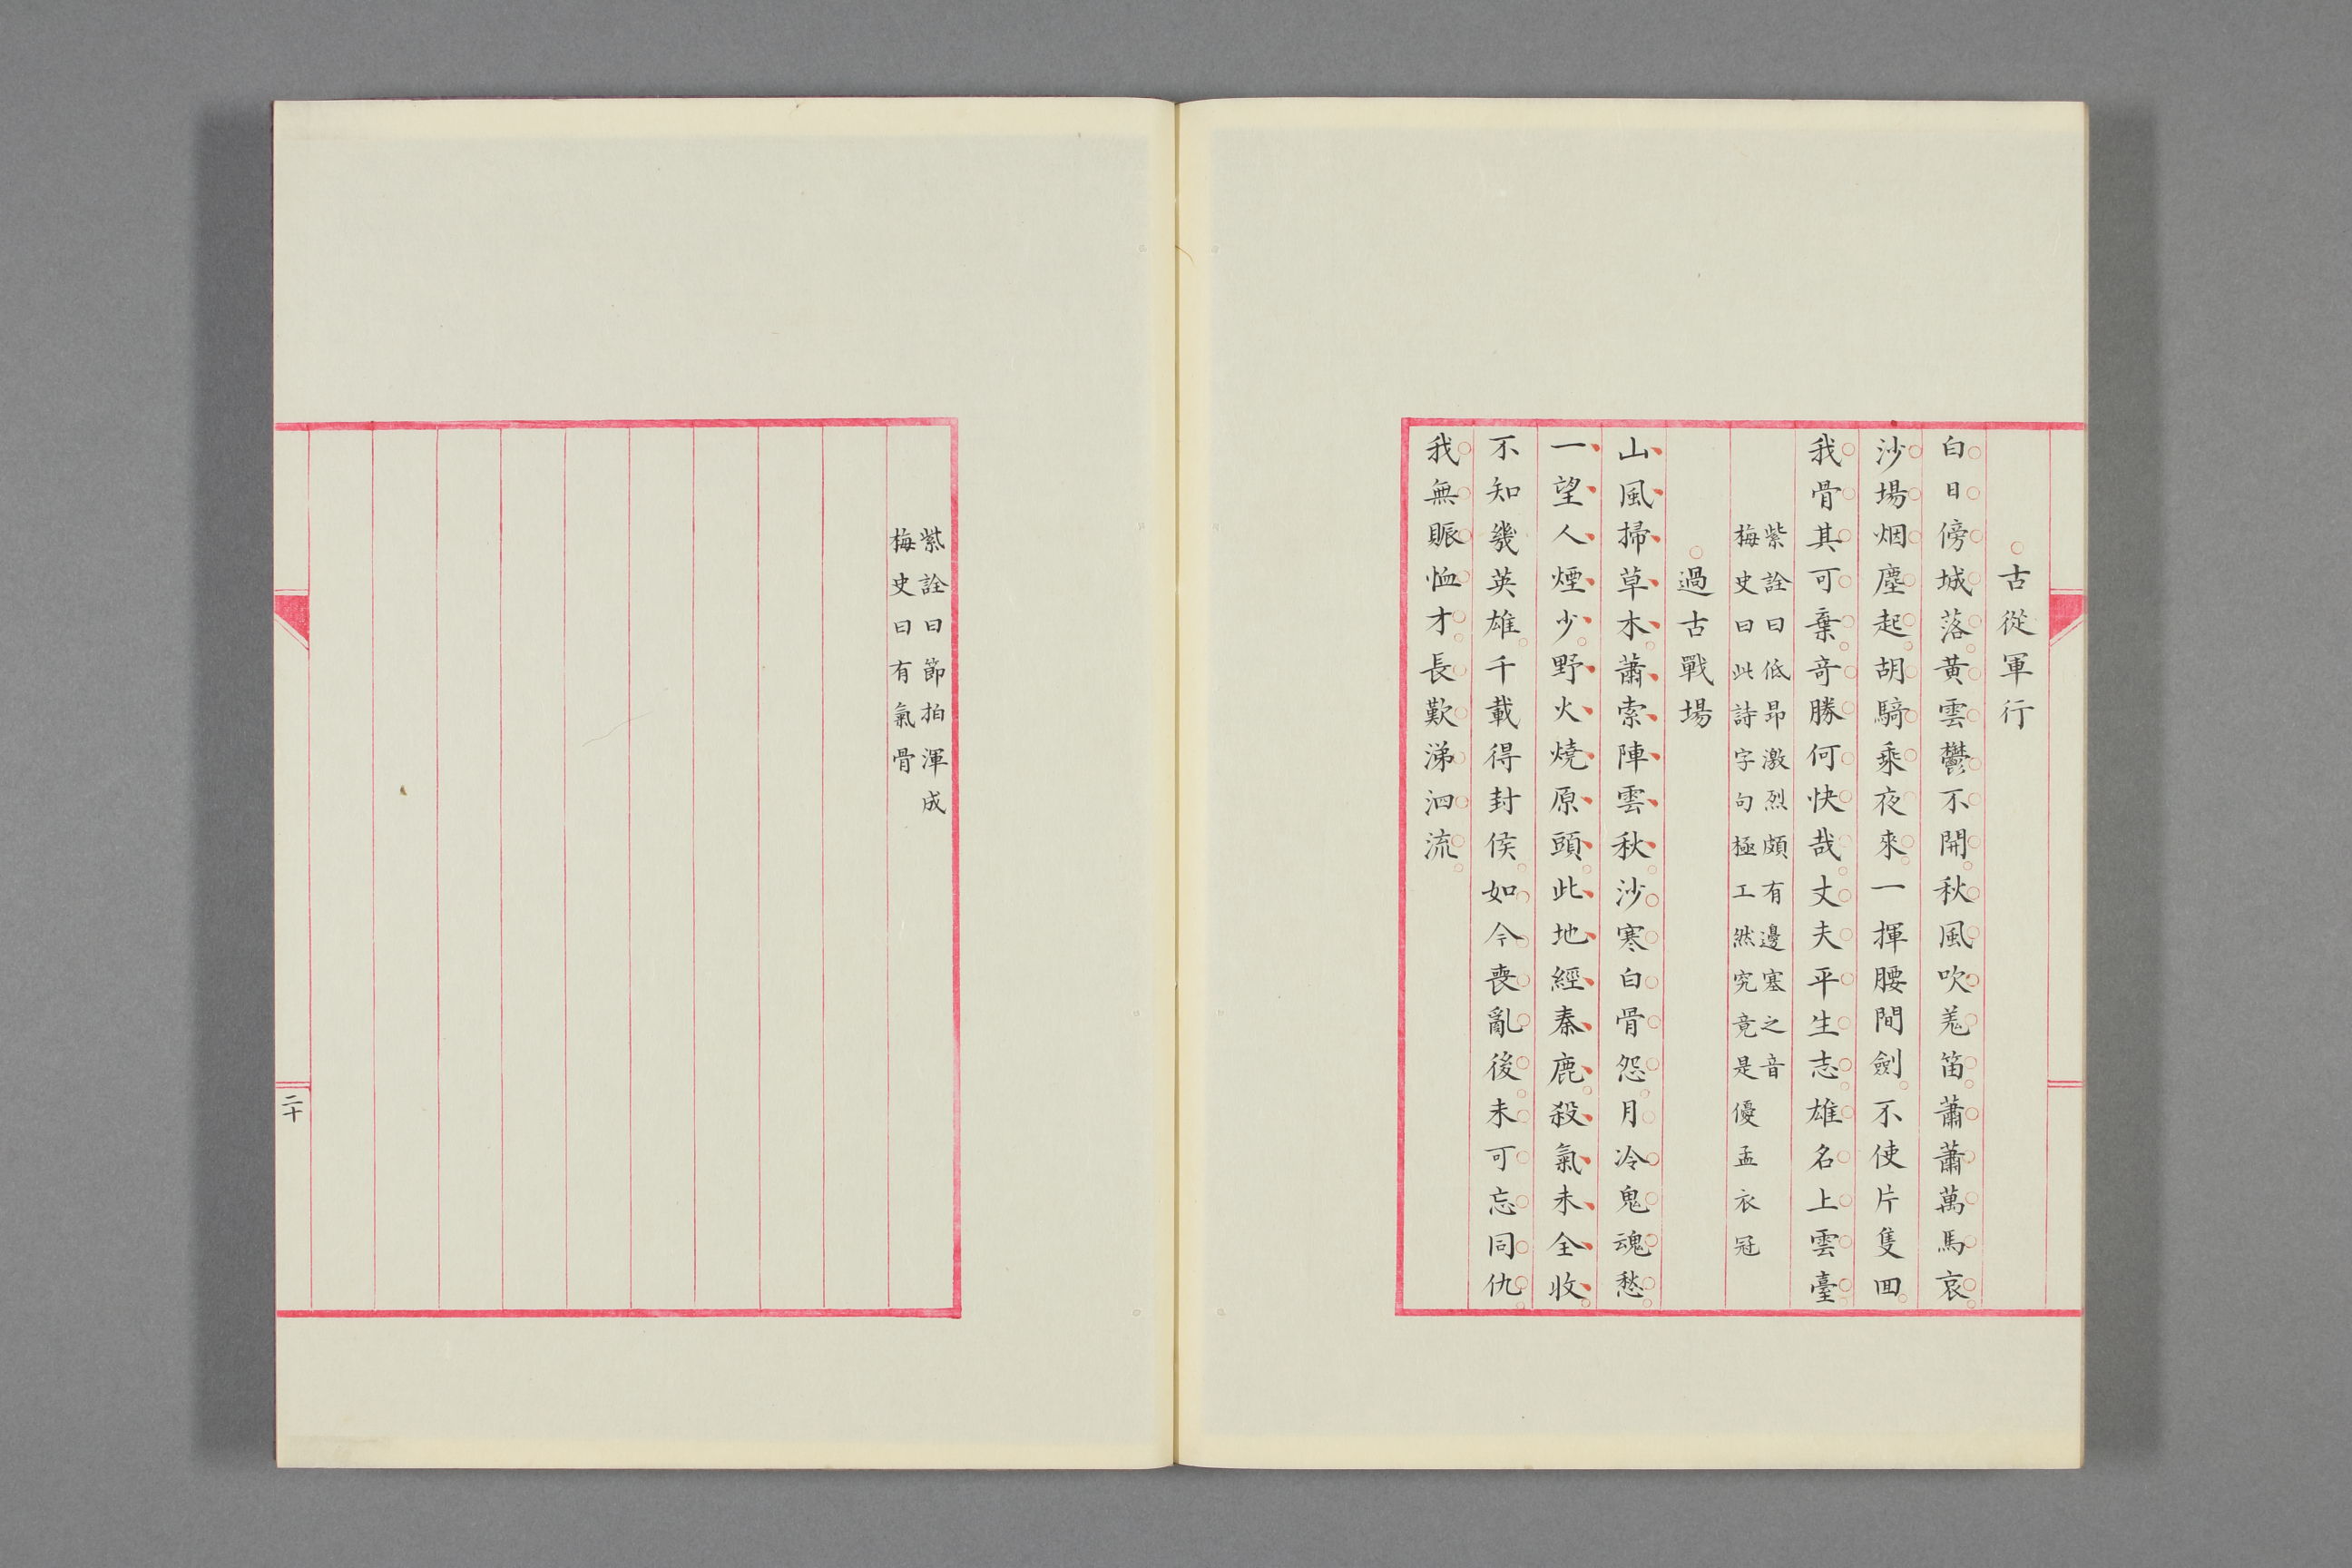 古從軍行
白日傍城落黃雲鬱不開秋風吹羗笛蕭蕭萬馬哀
沙場烟塵起胡騎乘夜來一揮腰間劍不使片隻囬
我骨其可棄奇勝何快哉丈夫平生志雄名上雲臺
紫詮曰低昂激烈頗有邊塞之音
梅史曰此詩字句極工然究竟是優孟衣冠
過古戰場
山風掃草木蕭索陣雲秋沙寒白骨怨月冷鬼魂愁
一望人煙少野火燒原頭此地經秦鹿殺氣未全收
不知幾英雄千載得封侯如今喪亂後未可忘同仇
我無賑恤才長歎涕泗流
紫詮曰節拍渾成
梅史曰有氣骨
二十